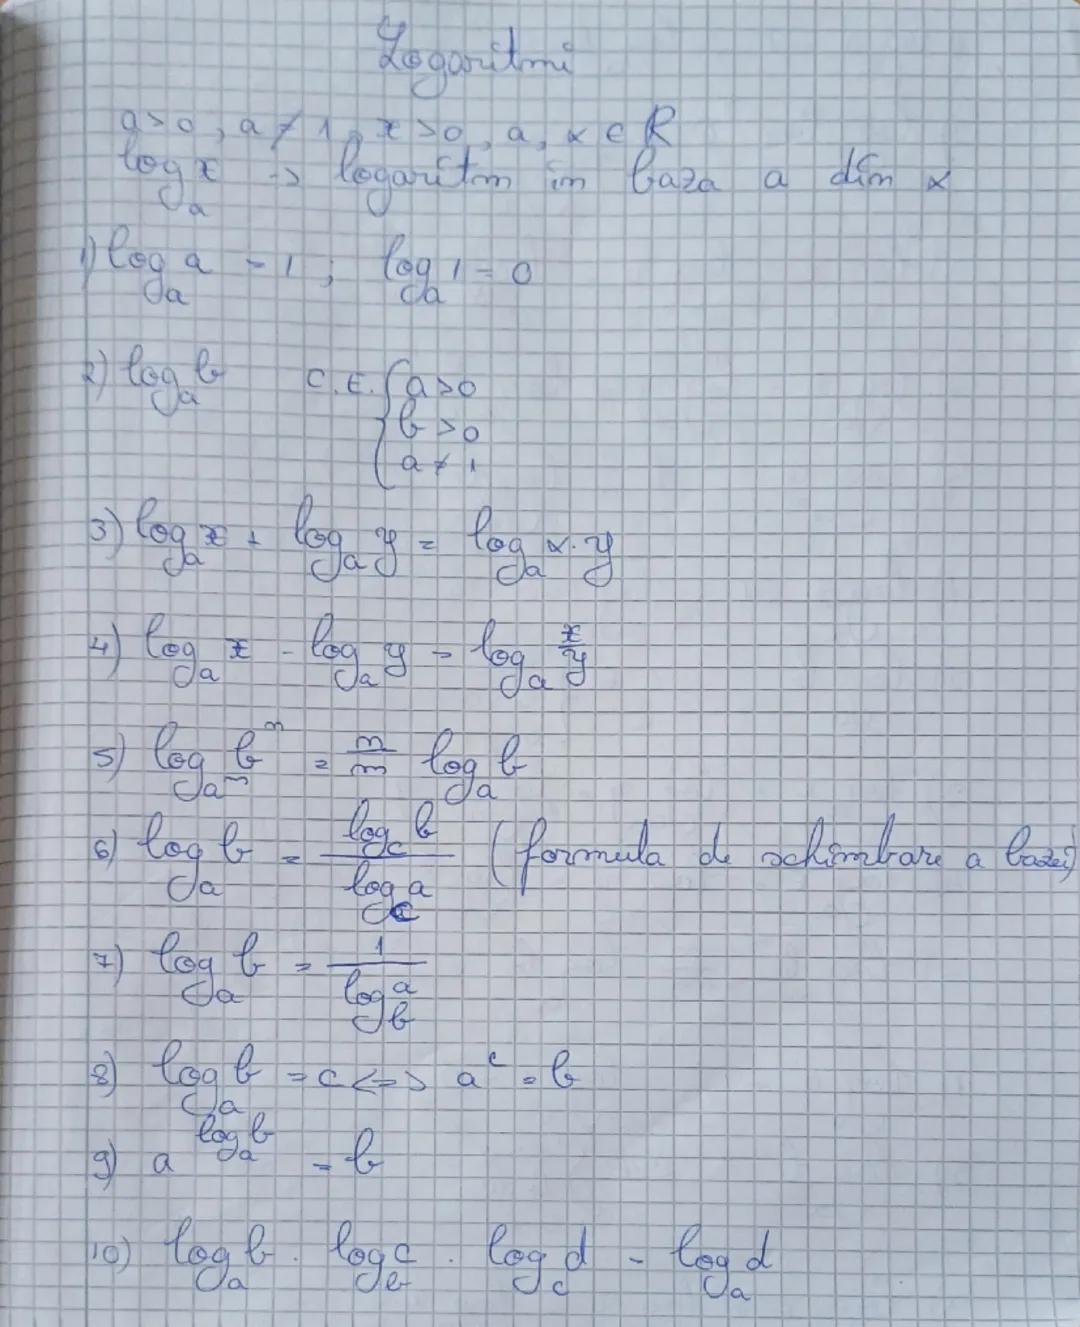 Logaritmi
a>0, a≠1, x>0, a, x ∈ R
log_a x -> logaritm in baza a din x
1) log_a a = 1 ; log_a 1 = 0
2) log_a b C.E. { a>0
b>0
a≠1
3) log_a x + log_a y = log_a x·y
4) log_a x - log_a y = log_a x/y
5) log_{a^m} b^n = n/m log_a b
6) log_a b = log_c b / log_c a (formula de schimbare a bazei)
7) log_a b = 1 / log_b a
8) log_a b = c <=> a^c = b
9) a^{log_a b} = b
10) log_a b · log_b c · log_c d = log_a d